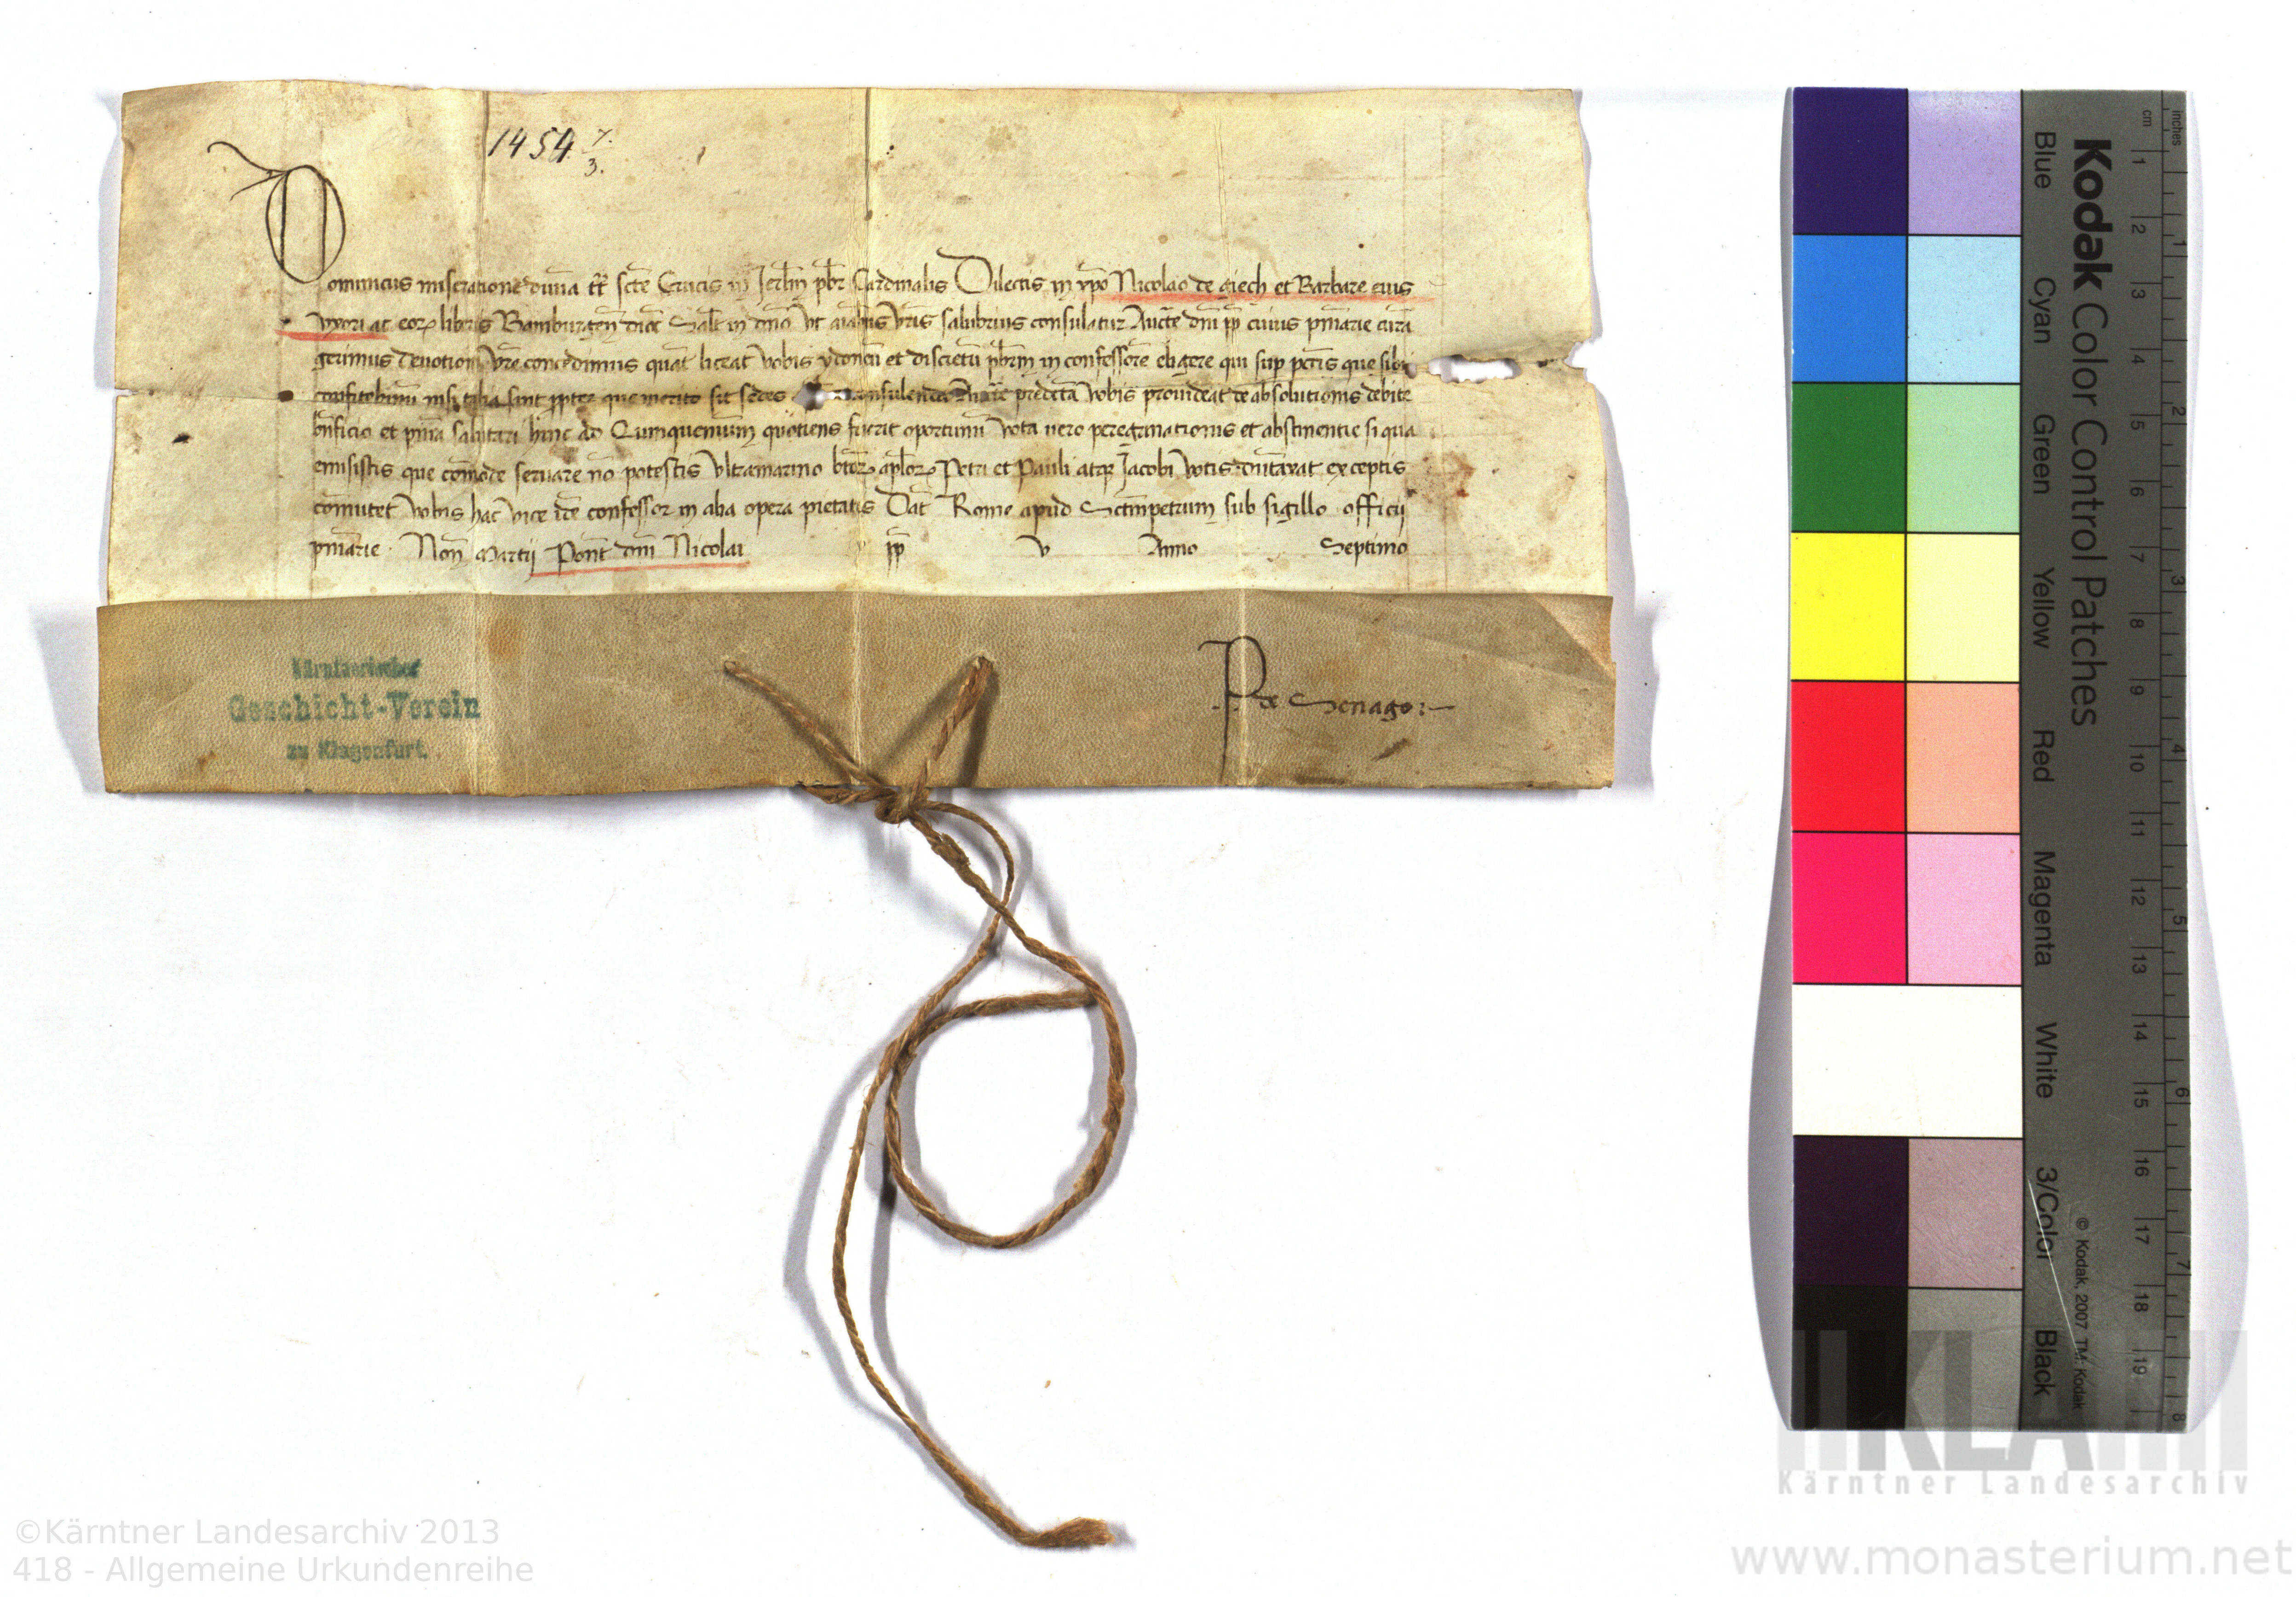 1454 7/3.
Dominicus miseratione diuina tt̄ scte Crucis in Jerlm pbr Cardinalis Dilectis in xpo Nicolao de giech et Barbare eius
vxori ac eorꝫ liberis Bamburgen dioc Salt in dno Vt aiabus vris salubrius consulatur Aucte dni pp cuius pniarie curam
gerimus deuotioni vre concedimus quat liceat vobis ydoneu et discretu pbrm in confessore eligere qui sup pctis que sibi
confitebimi nisi talia sint ppter que merito sit sedes consulenda Aucte predcta vobis prouideat de absolutionis debite
bnficio et pnia salutari hinc ad Quinquenium quotiens fuerit oportunu vota uero peregrinationis et abstinentie si qua
emisistis que comode seruare no potestis vltramarino btorꝫ aplorꝫ Petri et Pauli atqꝫ Jacobi votis dutaxat exceptis
comutet vobis hac vice ide confessor in alia opera pietatis Dat Rome apud Sctmpetrum sub sigillo officii
pniarie Non Martii Pont dni Nicolai pp v Anno Septimo
Kärntnerischer
Geschicht-Verein
zu Klagenfurt.
P de Senago
Kodak Color Control Patches
Blue Cyan Green Yellow Red Magenta White 3/Color Black
© Kodak, 2007 TM: Kodak
cm 1 2 3 4 5 6 7 8 9 10 11 12 13 14 15 16 17 18 19
inches 1 2 3 4 5 6 7 8
KLA
Kärntner Landesarchiv
©Kärntner Landesarchiv 2013
418 - Allgemeine Urkundenreihe
www.monasterium.net